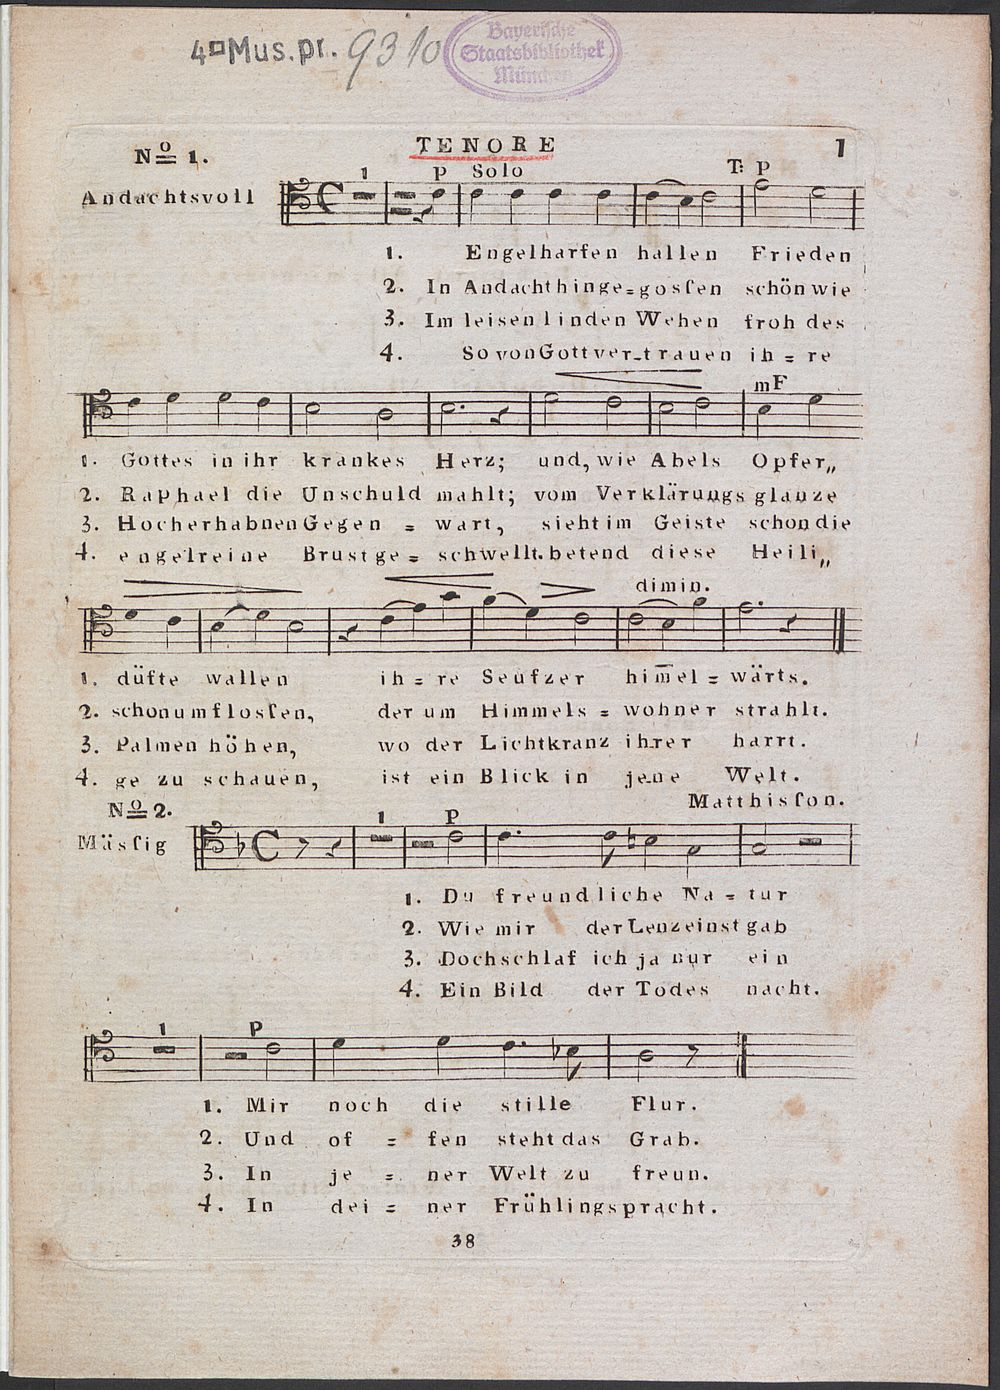 4° Mus. pr. 9310
Bayerische
Staatsbibliothek
München
TENORE
1
No 1.
1 p Solo T: p
Andachtsvoll
1. Engelharfen hallen Frieden
2. In Andacht hinge=gosſen schön wie
3. Im leisen linden Wehen froh des
4. So von Gottver-trauen ih=re
mF
1. Gottes in ihr krankes Herz; und, wie Abels Opfer„
2. Raphael die Unschuld mahlt; vom Verklärungs glanze
3. Hocherhabnen Gegen = wart, sieht im Geiste schon die
4. engelreine Brust ge = schwellt. betend diese Heili„
dimin.
1. düfte wallen ih = re Seufzer him̅el = wärts.
2. schon umflosſen, der um Himmels = wohner strahlt.
3. Palmen höhen, wo der Lichtkranz ihrer harrt.
4. ge zu schauen, ist ein Blick in jene Welt.
Matthisſon.
No 2.
1 P
Mäsſig
1. Du freundliche Na = tur
2. Wie mir der Lenz einst gab
3. Doch schlaf ich ja nur ein
4. Ein Bild der Todes nacht.
1 P
1. Mir noch die stille Flur.
2. Und of = fen steht das Grab.
3. In je = ner Welt zu freun.
4. In dei = ner Frühlingspracht.
38